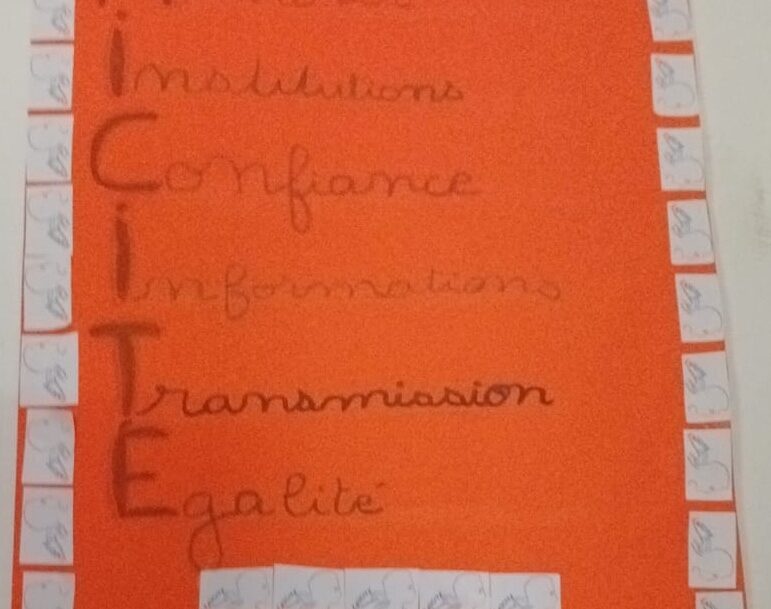 institutions
Confiance
informations
Transmission
Egalité